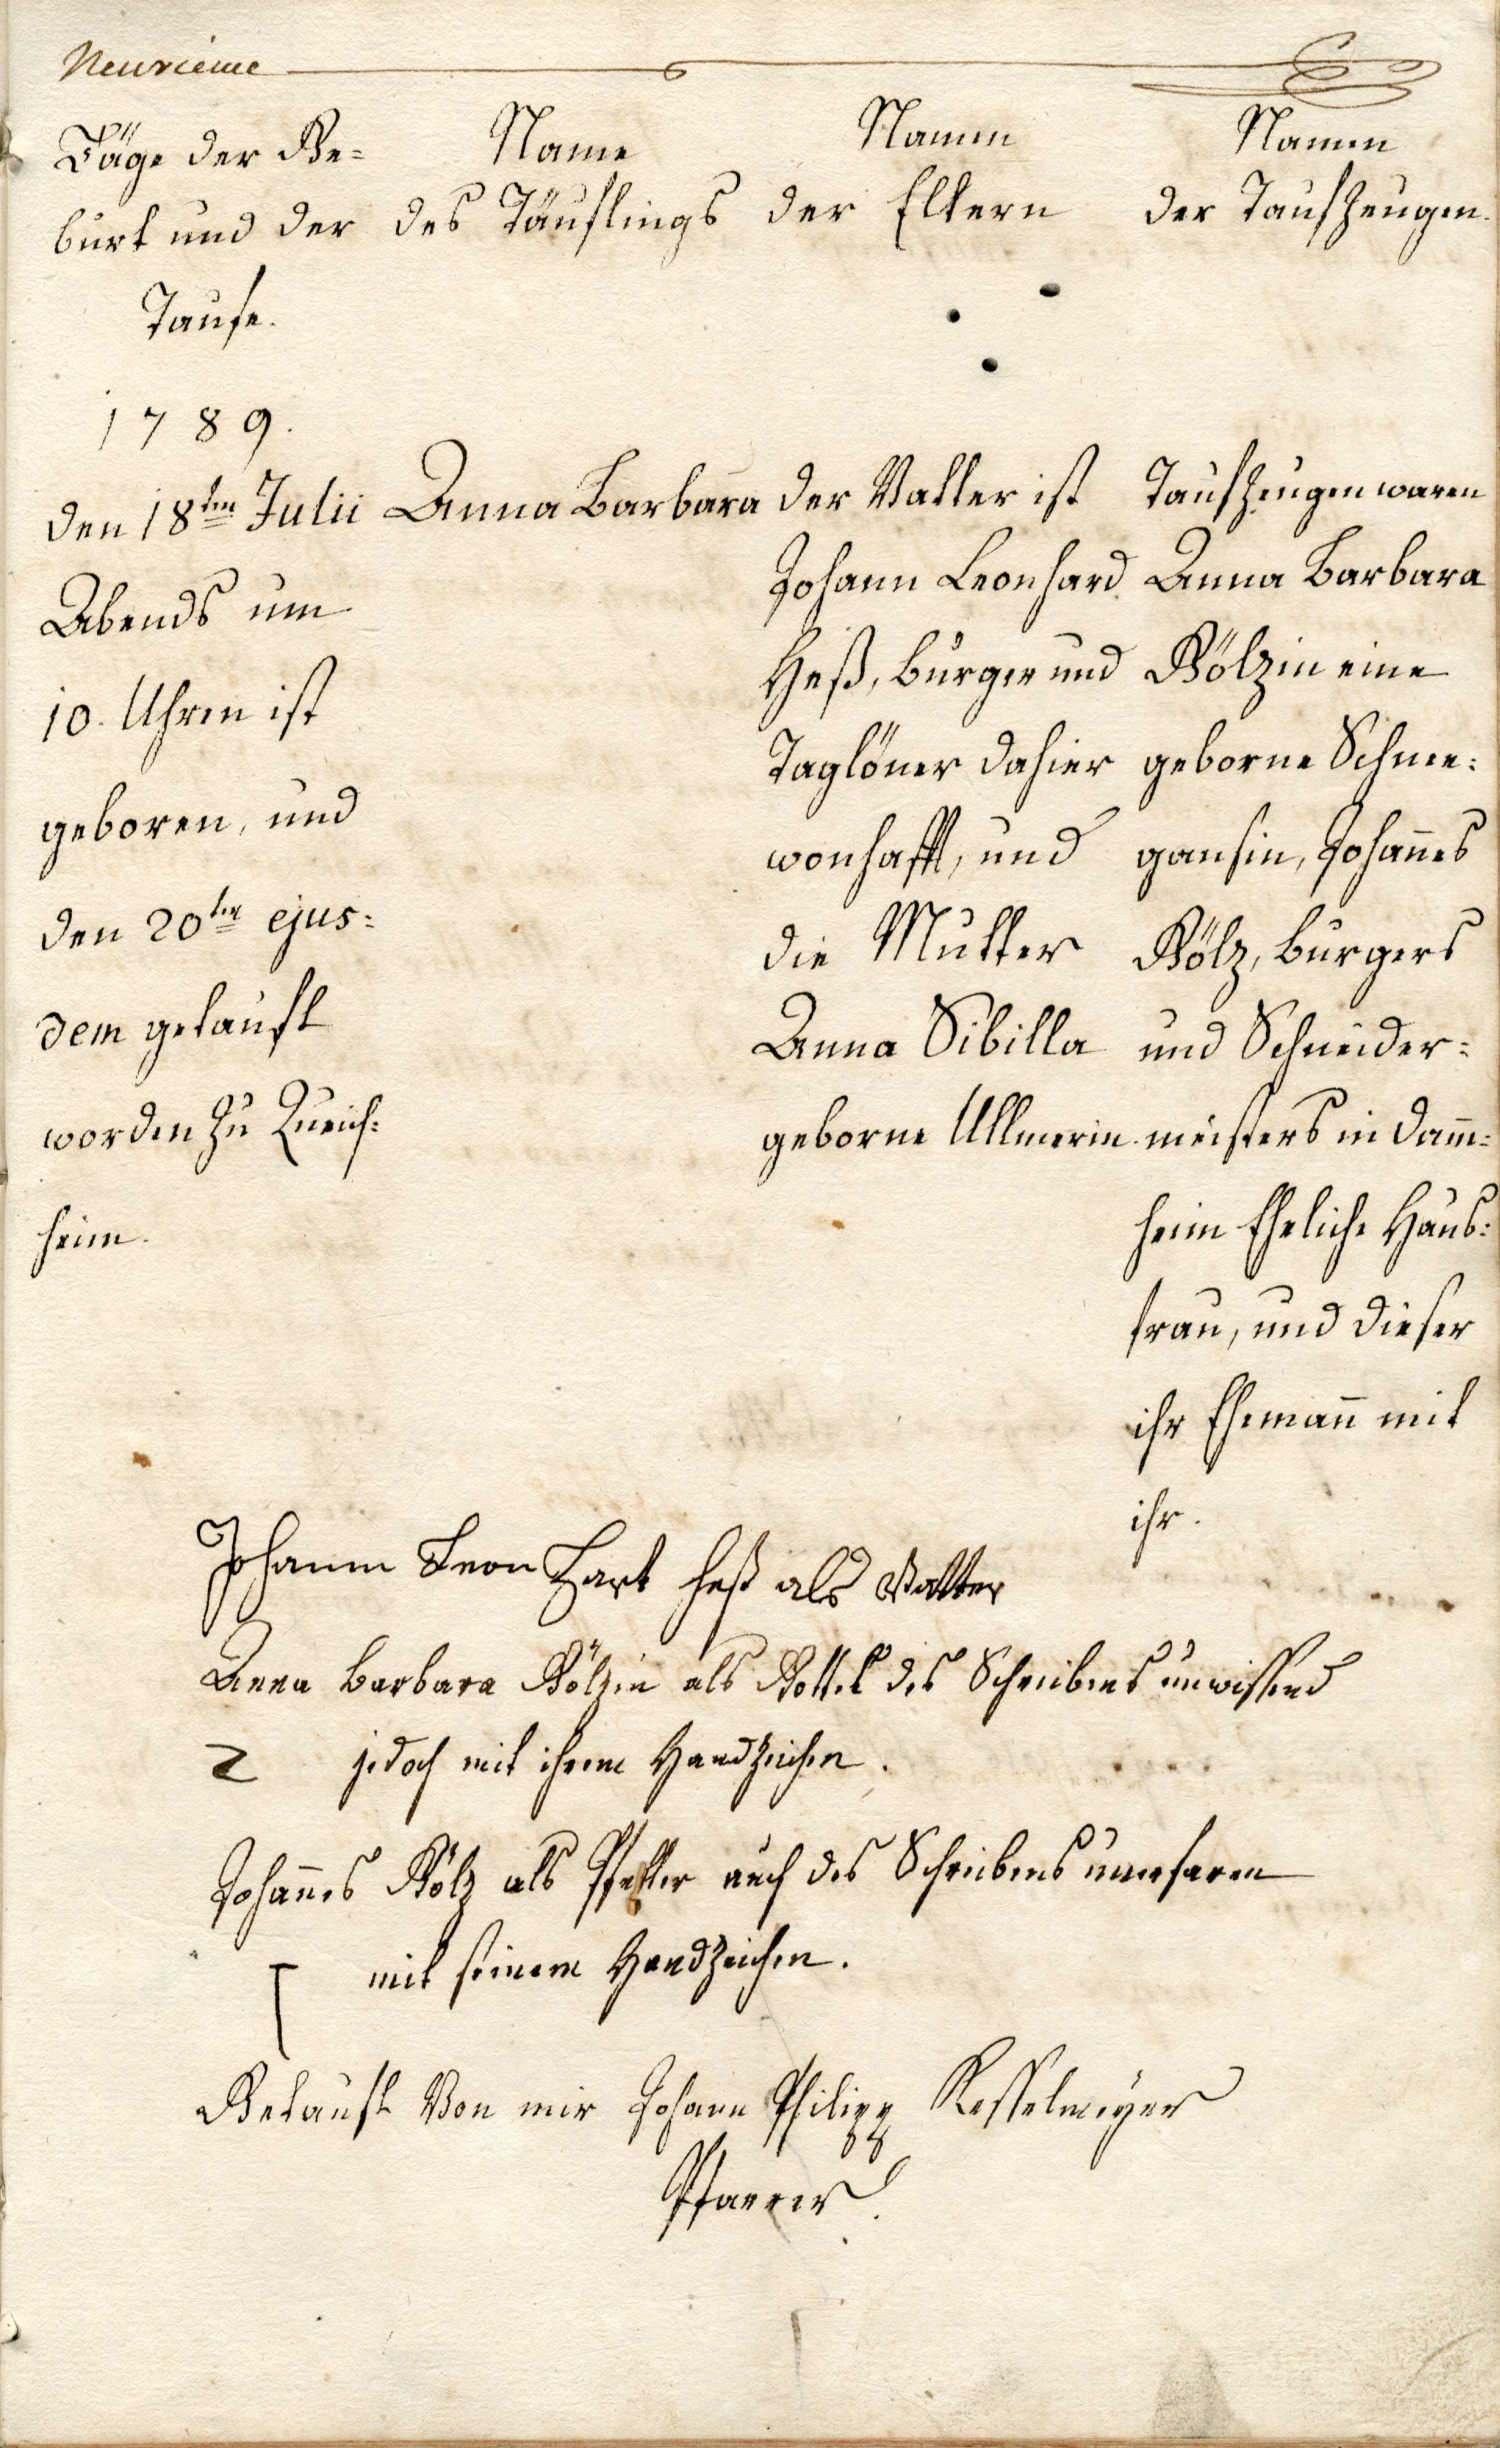 Neuvieme
Täge der Ge=
burt und der
Taufe.
Name
des Täuflings
Namen
der Eltern
Namen
der Taufzeugen.
1789.
den 18ten Julii
Abends um
10. Uhren ist
geboren, und
den 20ten ejus=
dem getauft
worden zu Queich=
heim.
Anna Barbara
der Vatter ist
Johann Leonhard
Heß, burger und
Taglöner dahier
wonhafft, und
die Mutter
Anna Sibilla
geborne Ullmerin.
Taufzeugen waren
Anna Barbara
Gölzin eine
geborne Schnee=
gansin, Johan̄es
Gölz, burgers
und Schneider=
meisters in Dam̄=
heim Eheliche Haus=
frau, und dieser
ihr Eheman̄ mit
ihr.
Johann Leon Hart heß als Vatter
Anna barbara Gölzin als Gottel des Schreibens unwissend
jedoch mit ihrem Handzeichen.
Johan̄es Gölz als Pfetter auch des Schreibens unerfaren
mit seinem Handzeichen.
Getauft Von mir Johann Philipp Kesselmeyer
Pfarrer.